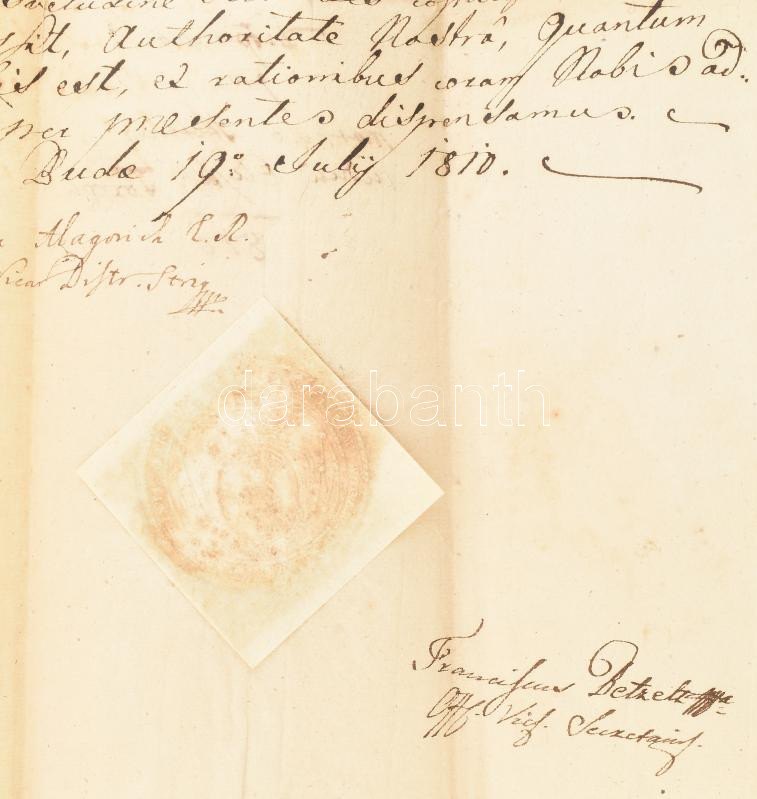 sit, Authoritate Nostrâ, quantum
is est, et rationibus coram Nobis ad-
per præsentes dispensamus.
Budæ 19º July 1810.
Alagovich E. R.
Vicar Distr. Strig
darabanth
Franciscus Betzek
Off. Vics. Secretarius.